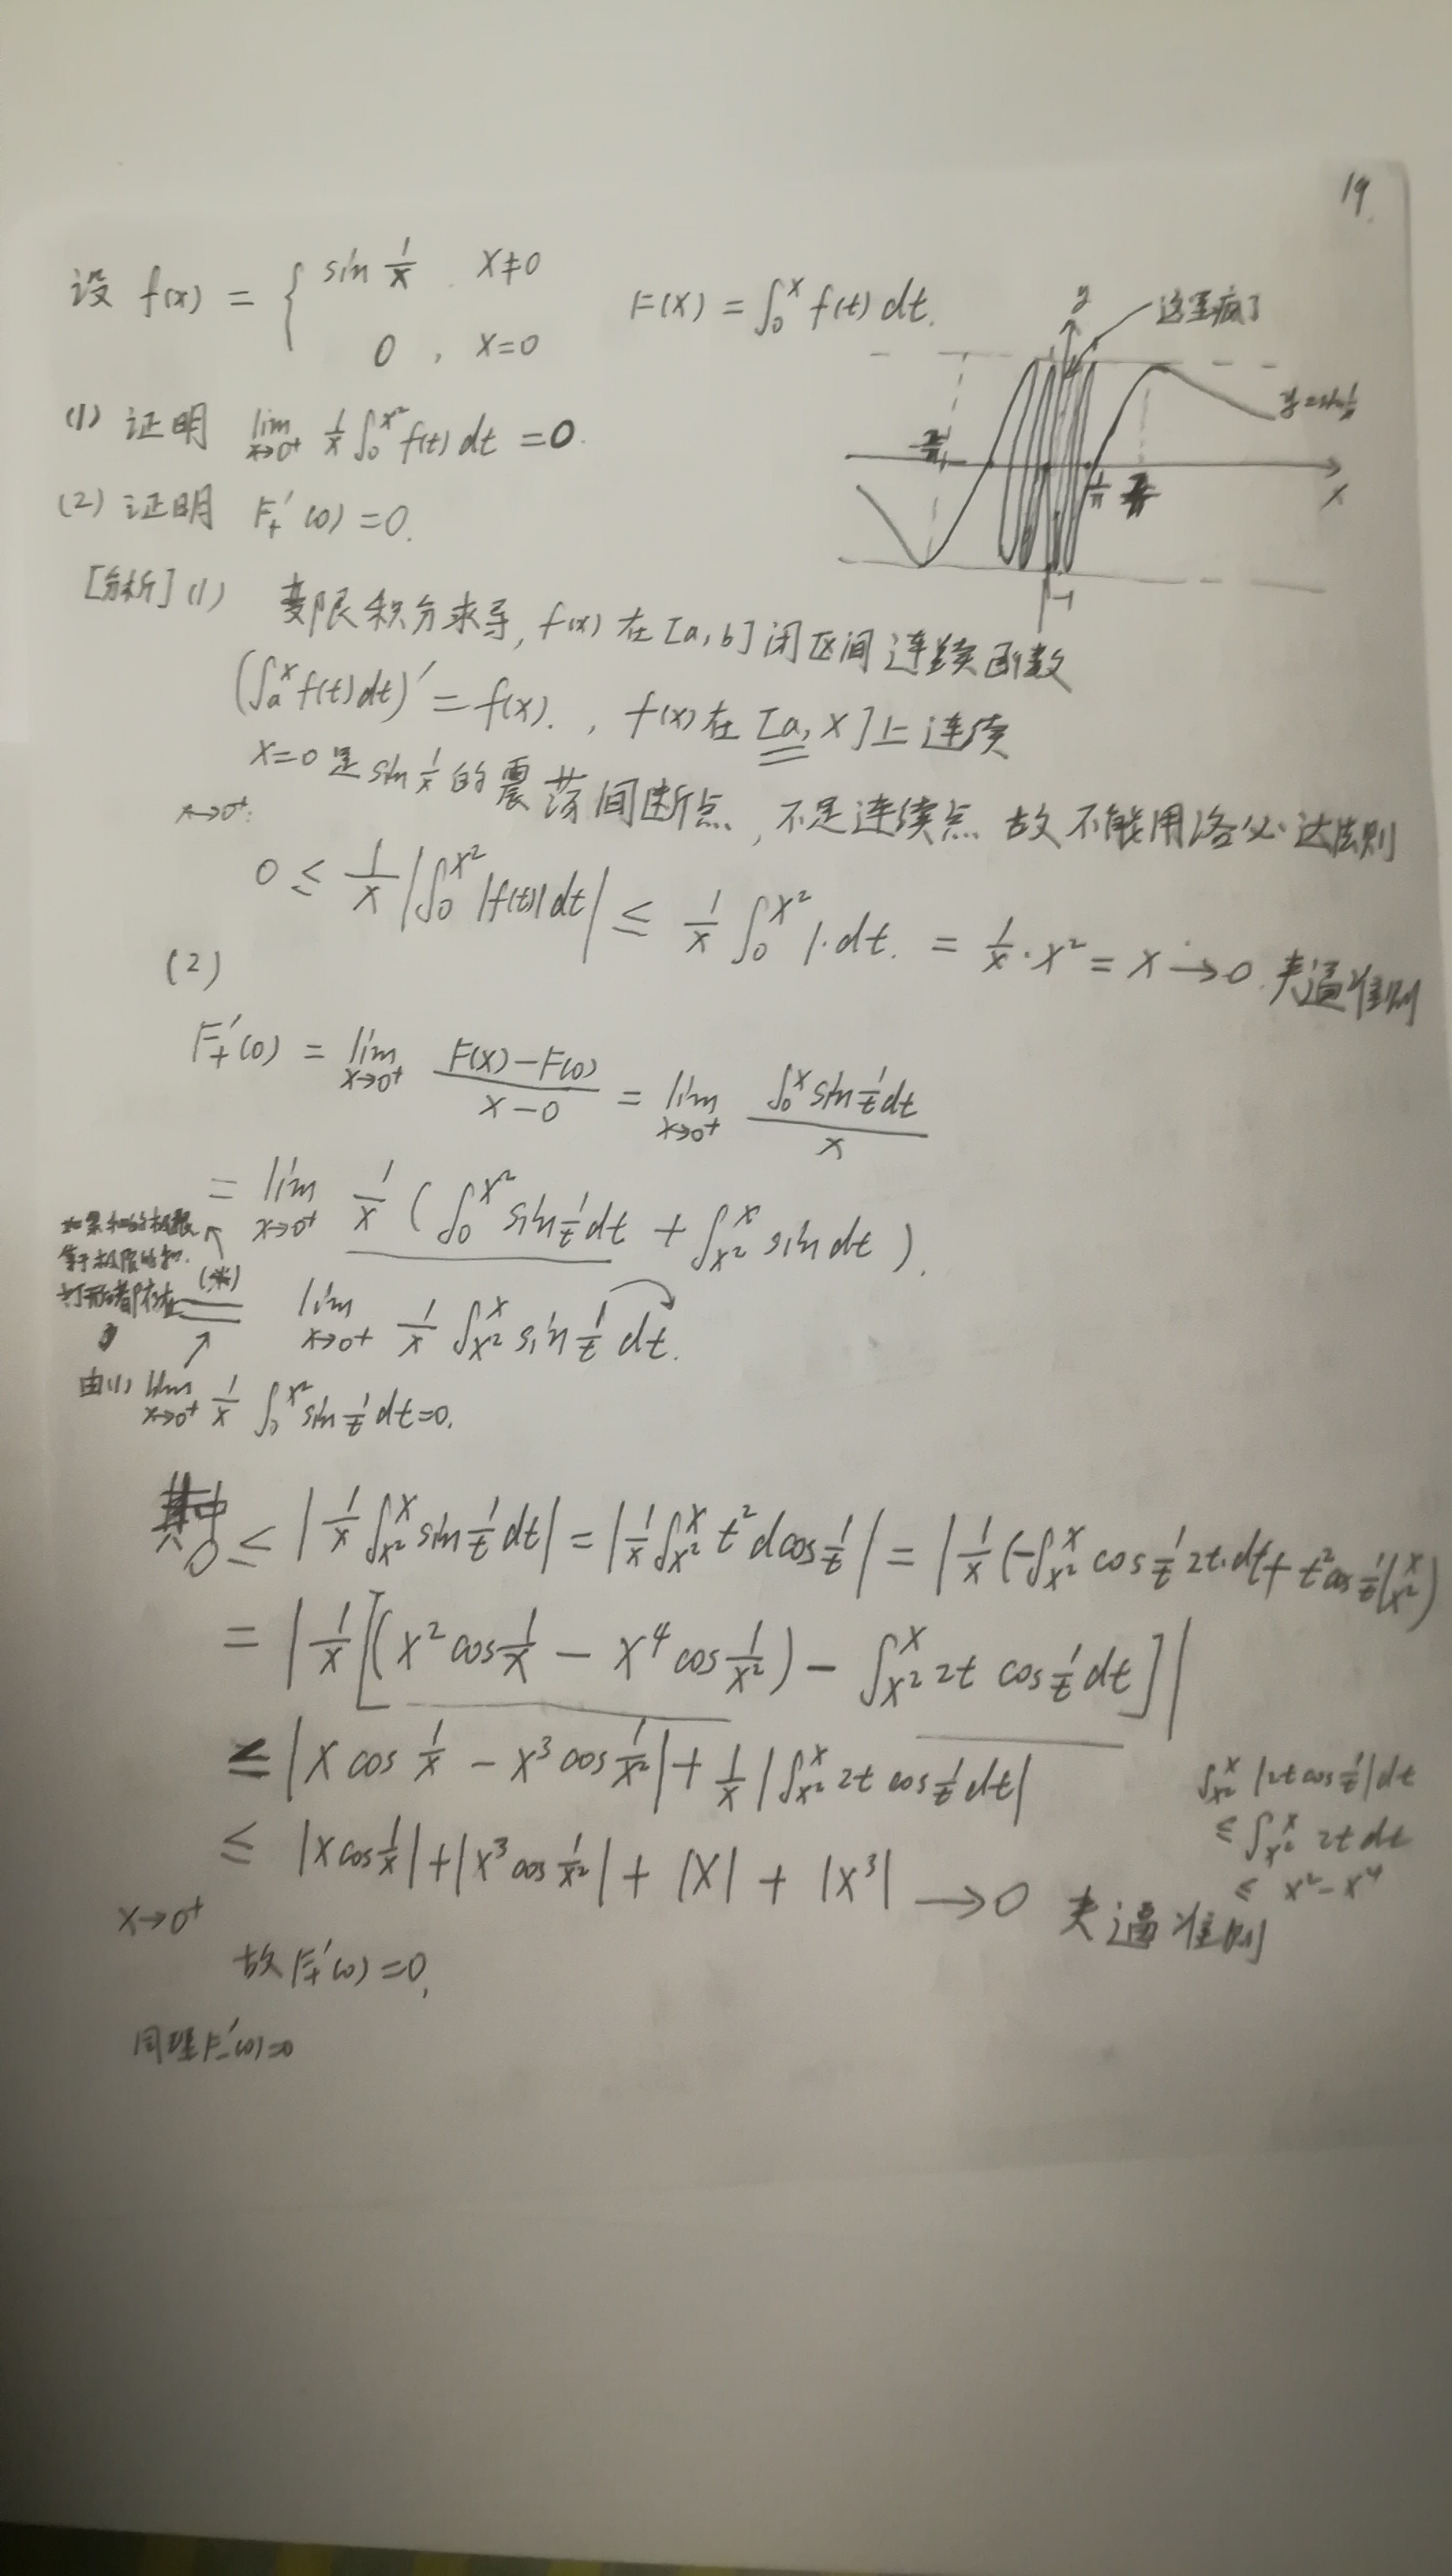 19.
设 f(x) = { sin 1/x , x≠0
0 , x=0
F(x) = ∫₀ˣ f(t) dt.
y
这里疯了
y=sin 1/x
-2/π
1/π 2/π
x
-1
(1) 证明 lim x→0⁺ 1/x ∫₀^(x²) f(t) dt = 0.
(2) 证明 F₊'(0) = 0.
[分析] (1) 变限积分求导, f(x) 在 [a, b] 闭区间连续函数
(∫ₐˣ f(t) dt)' = f(x). , f(x) 在 [a, x] 上连续
x=0 是 sin 1/x 的震荡间断点, 不是连续点 故不能用洛必达法则
x→0⁺:
0 ≤ 1/x |∫₀^(x²) |f(t)| dt| ≤ 1/x ∫₀^(x²) 1·dt. = 1/x · x² = x → 0. 夹逼准则
(2)
F₊'(0) = lim x→0⁺ (F(x)−F(0))/(x−0) = lim x→0⁺ (∫₀ˣ sin 1/t dt)/x
= lim x→0⁺ 1/x ( ∫₀^(x²) sin 1/t dt + ∫_(x²)^x sin dt ).
如果和的极限
等于极限的和.
(*)
= lim x→0⁺ 1/x ∫_(x²)^x sin 1/t dt.
由(1) lim x→0⁺ 1/x ∫₀^(x²) sin 1/t dt = 0.
0 ≤ |1/x ∫_(x²)^x sin 1/t dt| = |1/x ∫_(x²)^x t² d cos 1/t| = |1/x (−∫_(x²)^x cos 1/t 2t·dt + t² cos 1/t |_(x²)^x)|
= |1/x [(x² cos 1/x − x⁴ cos 1/x²) − ∫_(x²)^x 2t cos 1/t dt]|
≤ |x cos 1/x − x³ cos 1/x²| + 1/x |∫_(x²)^x 2t cos 1/t dt|
∫_(x²)^x |2t cos 1/t| dt
≤ ∫_(x²)^x 2t dt
≤ x² − x⁴
≤ |x cos 1/x| + |x³ cos 1/x²| + |x| + |x³| → 0 夹逼准则
x→0⁺
故 F₊'(0) = 0,
同理 F₋'(0) = 0